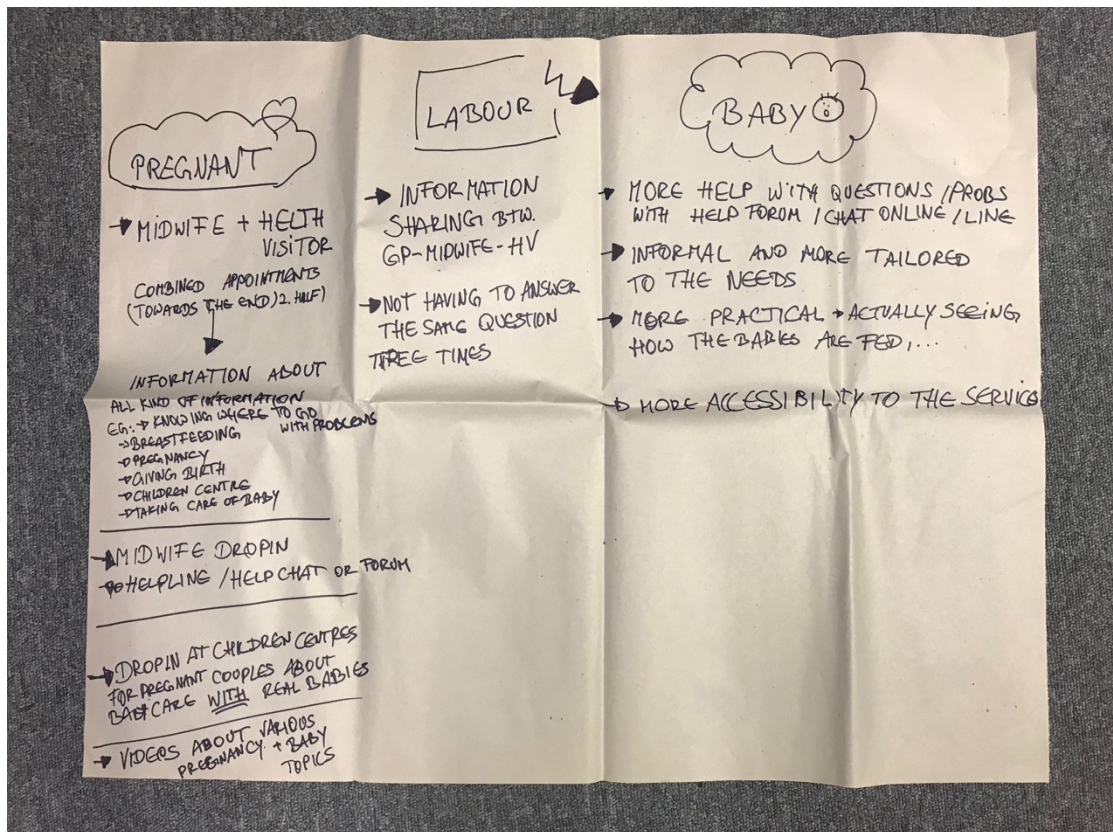 PREGNANT
→ MIDWIFE + HELTH
VISITOR
COMBINED APPOINTMENTS
(TOWARDS THE END) 2. HALF)
INFORMATION ABOUT
ALL KIND OF INFORMATION
EG: → KNOWING WHERE TO GO
WITH PROBLEMS
→ BREASTFEEDING
→ PREGNANCY
→ GIVING BIRTH
→ CHILDREN CENTRE
→ TAKING CARE OF BABY
→ MIDWIFE DROPIN
→ HELPLINE / HELP CHAT OR FORUM
→ DROPIN AT CHILDREN CENTRES
FOR PREGNANT COUPLES ABOUT
CARE WITH REAL BABIES
→ VIDEOS ABOUT VARIOUS
PREGNANCY + BABY
TOPICS
LABOUR
→ INFORMATION
SHARING BTW.
GP-MIDWIFE-HV
→ NOT HAVING TO ANSWER
THE SAME QUESTION
TREE TIMES
BABY
→ MORE HELP WITH QUESTIONS / PROBS
WITH HELP FORUM / CHAT ONLINE / LINE
→ INFORMAL AND MORE TAILORED
TO THE NEEDS
→ MORE PRACTICAL → ACTUALLY SEEING
HOW THE BABIES ARE FED, ...
→ MORE ACCESSIBILITY TO THE SERVICE